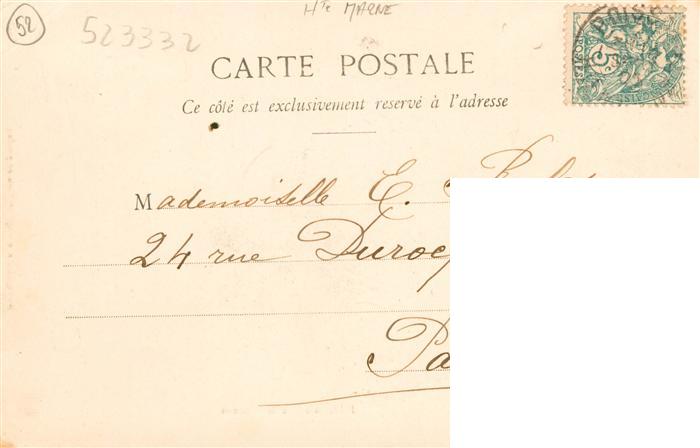 52
523332
Hte MARNE
CARTE POSTALE
Ce côté est exclusivement reservé à l'adresse
Mademoiselle E.
24 rue Duroc